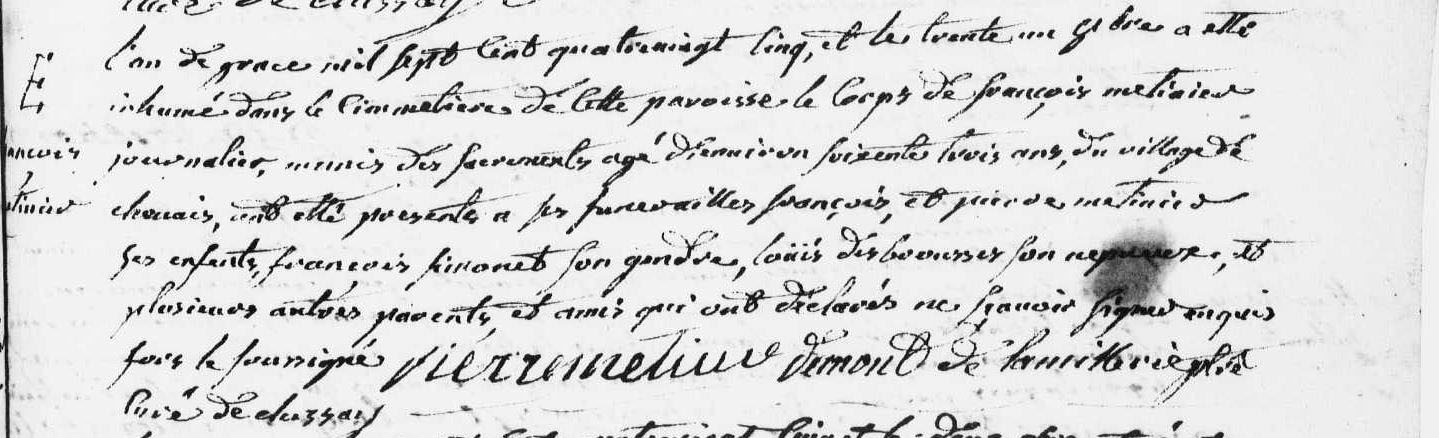 curé de clussay
l'an de grace mil sept cent quatrevingt cinq, et le trente un 8bre a etté
E
inhumé dans le cimmetiere de cette paroisse le corps de françois metivier
ançois
journalier, munis des sacrements agé d'environ soixente trois ans, du village de
etivier
chevais, ont etté presents a ses funerailles françois, et pierre metivier
ses enfents, françois simonet son gendre, loüis desbrousses son nepveux, et
plusieurs autres parents, et amis qui ont déclarés ne sçavoir signer enquis
fors le soussigné pierre metiver Demont de lamillerie ptre
curé de clussay